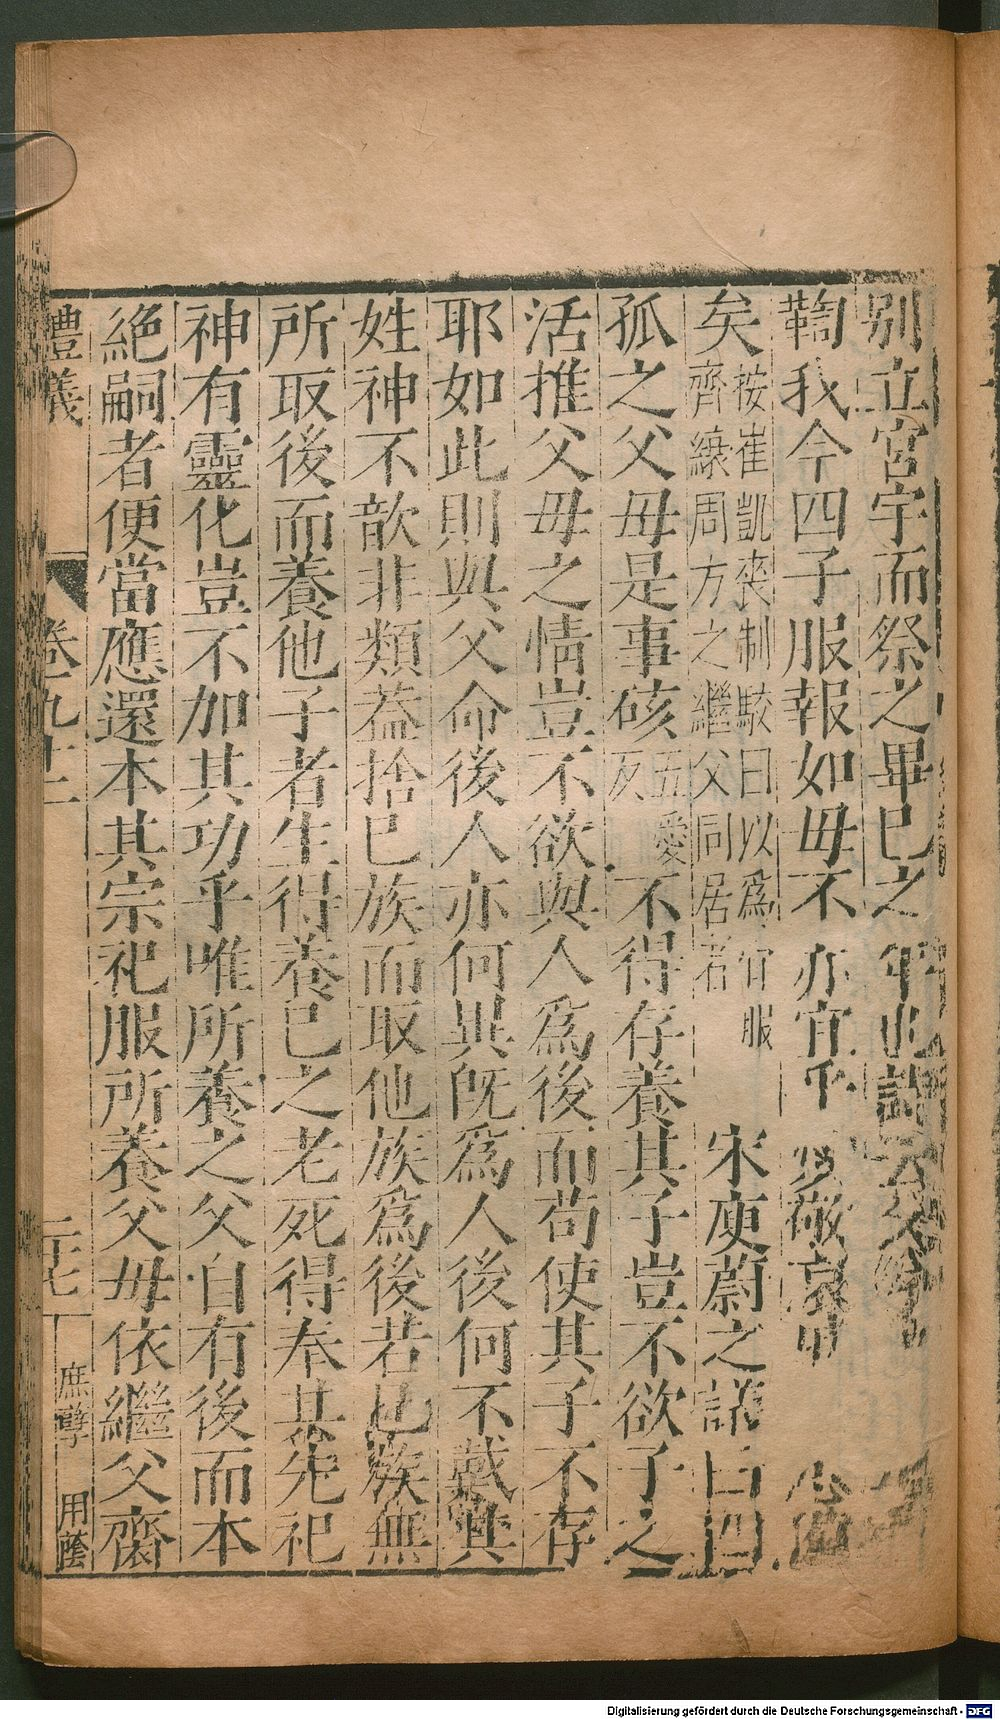 別立宮宇而祭之畢已之年也詩
鞫我今四子服報如毋不亦宜乎 敬哀
矣按崔凱喪制駮曰以爲宜服
齊縗周方之繼父同居者 宋庾蔚之議曰四
孤之父毋是事硋五愛
反不得存養其子豈不欲子之
活推父毋之情豈不欲與人爲後而苟使其子不存
耶如此則與父命後人亦何異旣爲人後何不戴其
姓神不歆非類葢捨已族而取他族爲後若已族無
所取後而養他子者生得養已之老死得奉其先祀
神有靈化豈不加其功乎唯所養之父自有後而本
絕嗣者便當應還本其宗祀服所養父毋依繼父齋
禮義 卷九十一 二十七 庶孽 用蔭
Digitalisierung gefördert durch die Deutsche Forschungsgemeinschaft - DFG